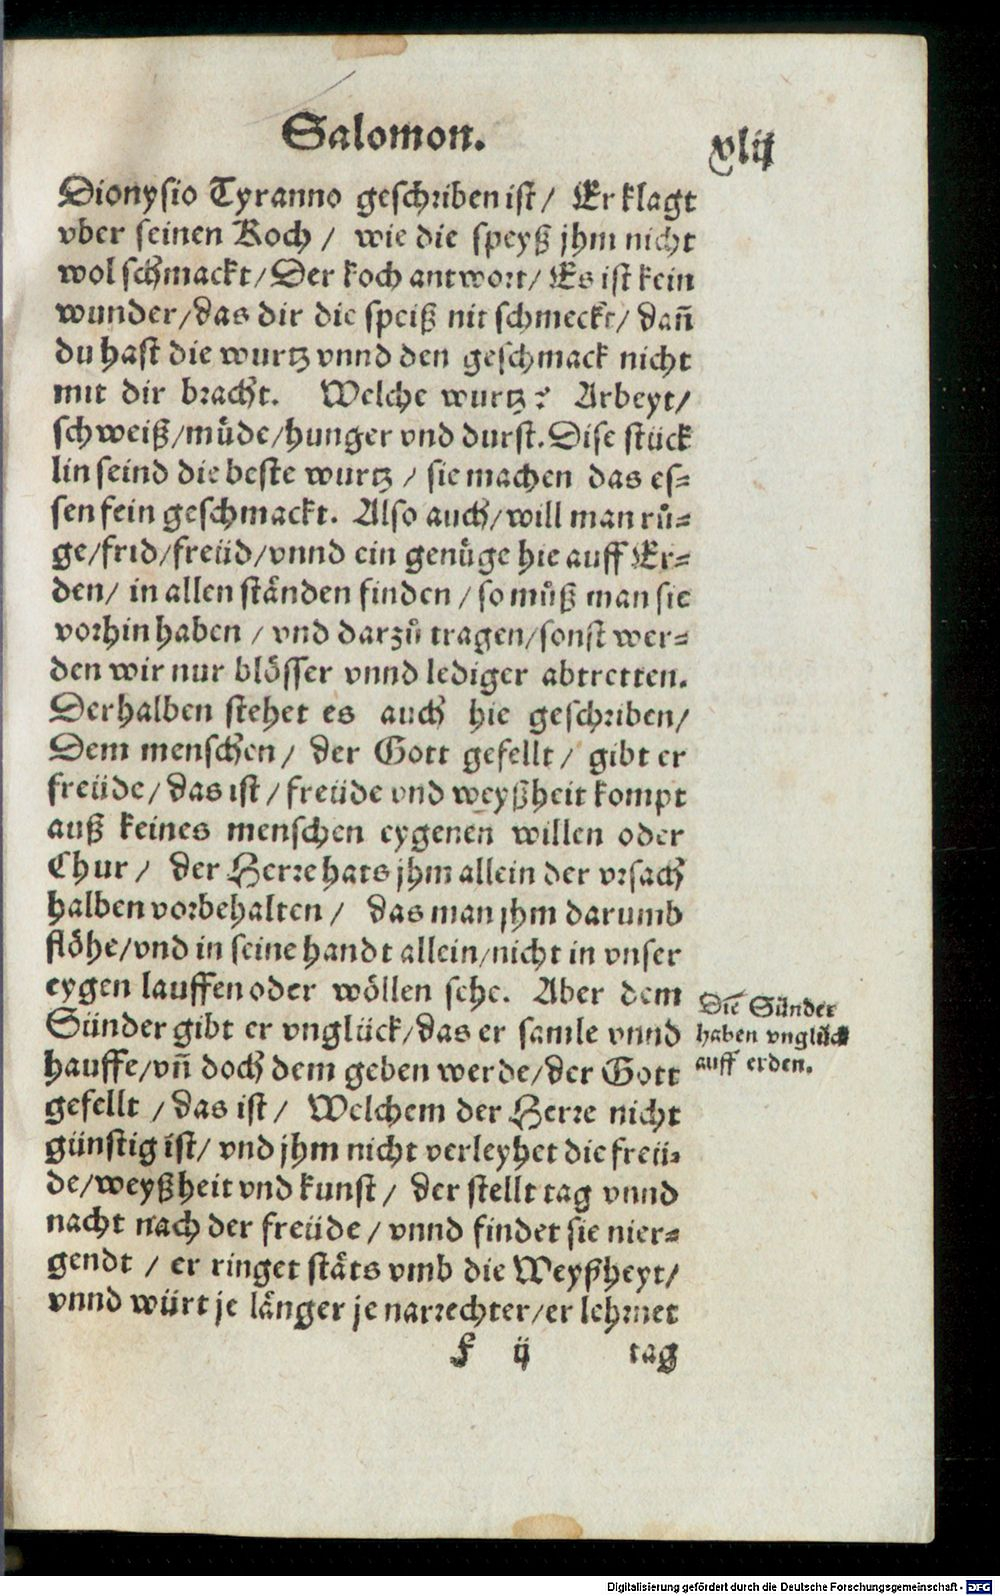 Salomon.
xlij
Dionysio Tyranno geschriben ist/ Er klagt
vber seinen Koch/ wie die speyß jhm nicht
wol schmackt/Der koch antwort/ Es ist kein
wunder/das dir die speiß nit schmeckt/ dañ
du hast die wurtz vnnd den geschmack nicht
mit dir bracht. Welche wurtz? Arbeyt/
schweiß/müde/hunger vnd durst. Dise stück
lin seind die beste wurtz/ sie machen das es-
sen fein geschmackt. Also auch/will man rů-
ge/frid/freüd/vnnd ein genüge hie auff Er-
den/ in allen ständen finden/ so můß man sie
vorhin haben/ vnd darzů tragen/sonst wer-
den wir nur blösser vnnd lediger abtretten.
Derhalben stehet es auch hie geschriben/
Dem menschen/ der Gott gefellt/ gibt er
freüde/das ist/freüde vnd weyßheit kompt
auß keines menschen eygenen willen oder
Chur/ der Herre hats jhm allein der vrsach
halben vorbehalten/ das man jhm darumb
flöhe/vnd in seine handt allein/nicht in vnser
eygen lauffen oder wöllen sehe. Aber dem
Sünder gibt er vnglück/das er samle vnnd
hauffe/vñ doch dem geben werde/der Gott
gefellt/das ist/ Welchem der Herre nicht
günstig ist/ vnd jhm nicht verleyhet die freü-
de/weyßheit vnd kunst/ der stellt tag vnnd
nacht nach der freüde/ vnnd findet sie nier-
gendt/ er ringet stäts vmb die Weyßheyt/
vnnd würt je länger je narrechter/er lehrnet
Die Sünder
haben vnglück
auff erden.
F ij tag
Digitalisierung gefördert durch die Deutsche Forschungsgemeinschaft - DFG